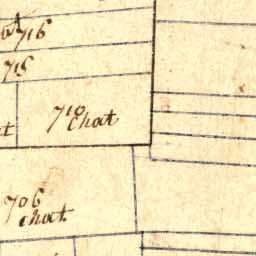 716
715
710
Chat
706
Chat